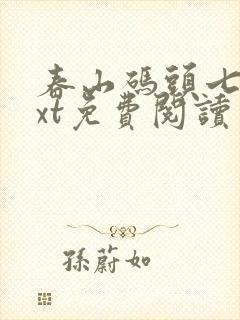 春山碼頭七
xt免費閱讀
孫蔚如